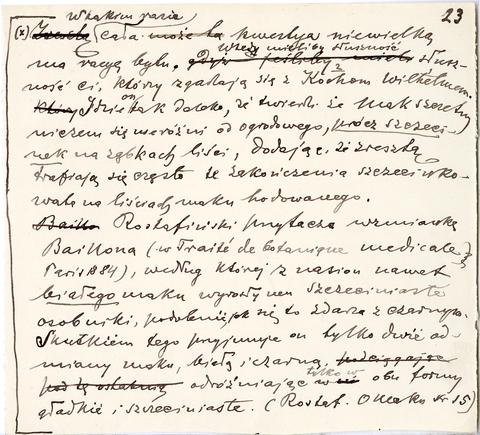 23
W takim razie
(x) cała może ta kwestya niewielką
ma racyę bytu. Wszak mieliby słuszność
ność ci, którzy zgadzają się z Kochem Wilhelmem.
Idzie on tak daleko, że twierdzi że mak szczetny
niczem się nieróżni od ogrodowego, prócz szczeci-
nek na ząbkach liści, dodając, że zresztą
trafiają się często te zakończenia szczecinko-
wate na liściach maku hodowanego.
Baillo Rostafiński przytacza wzmiankę
Baillona (w Traité de botanique medicale
Paris 1884), według której z nasion nawet
białego maku wyrosły mu szczeciniaste
osobniki, podobnież się to zdarza z czarnym.
Skutkiem tego przyjmuje on tylko dwie od-
miany maku, białą i czarną,
odróżniając tylko w obu formy
gładkie i szczeciniaste. (Rostaf. O maku str 15)